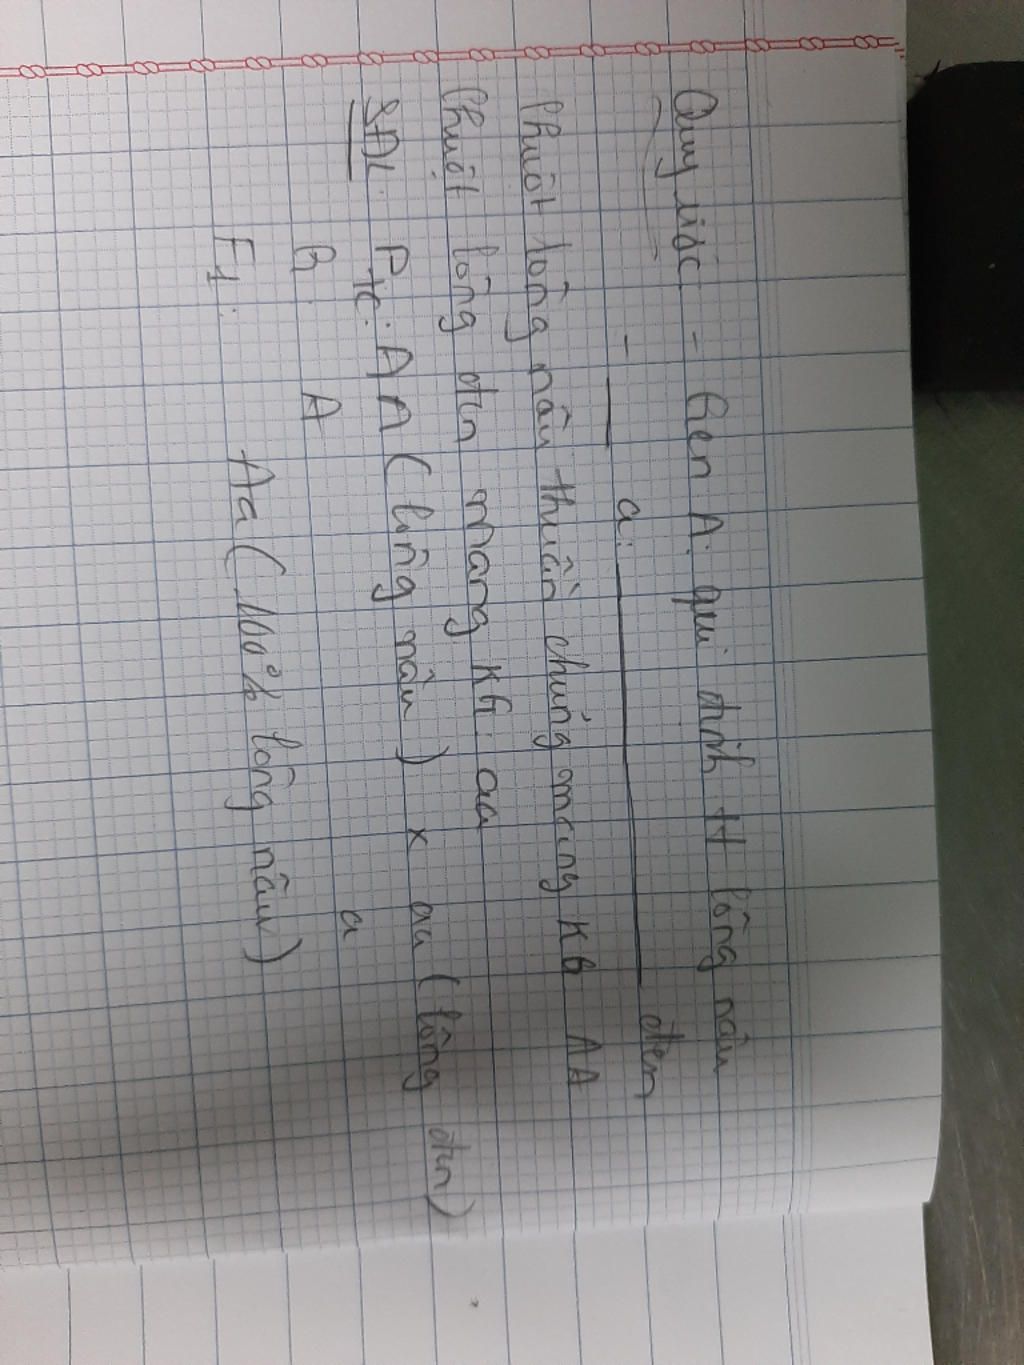 Quy ước - Gen A: qui định tt lông nâu
- — a: ——— đen
Chuột lông nâu thuần chủng mang KG AA
Chuột lông đen mang KG: aa
SĐL: Ptc: AA (lông nâu) x aa (lông đen)
G: A a
F1: Aa (100% lông nâu)